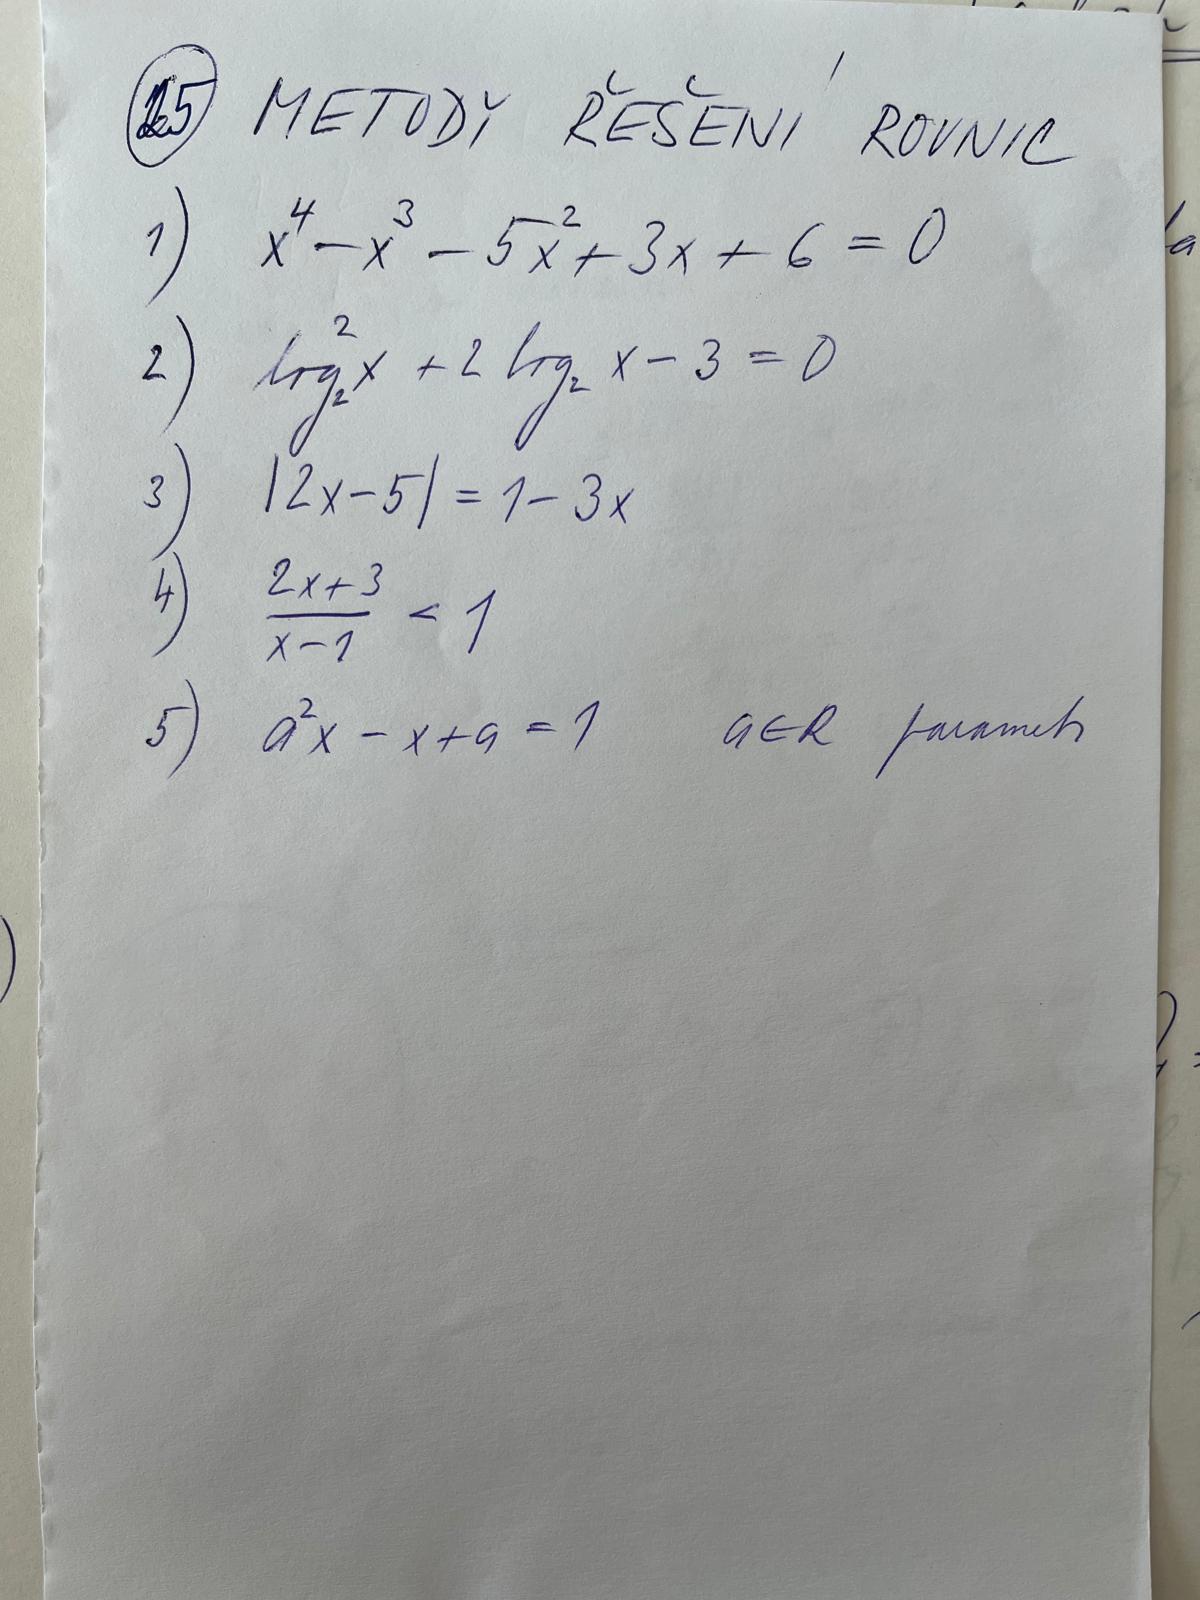 25 METODY ŘEŠENÍ ROVNIC
1) x⁴ - x³ - 5x² + 3x + 6 = 0
2) log₂²x + 2 log₂ x - 3 = 0
3) |2x - 5| = 1 - 3x
4) (2x+3)/(x-1) < 1
5) a²x - x + a = 1 a∈R parametr